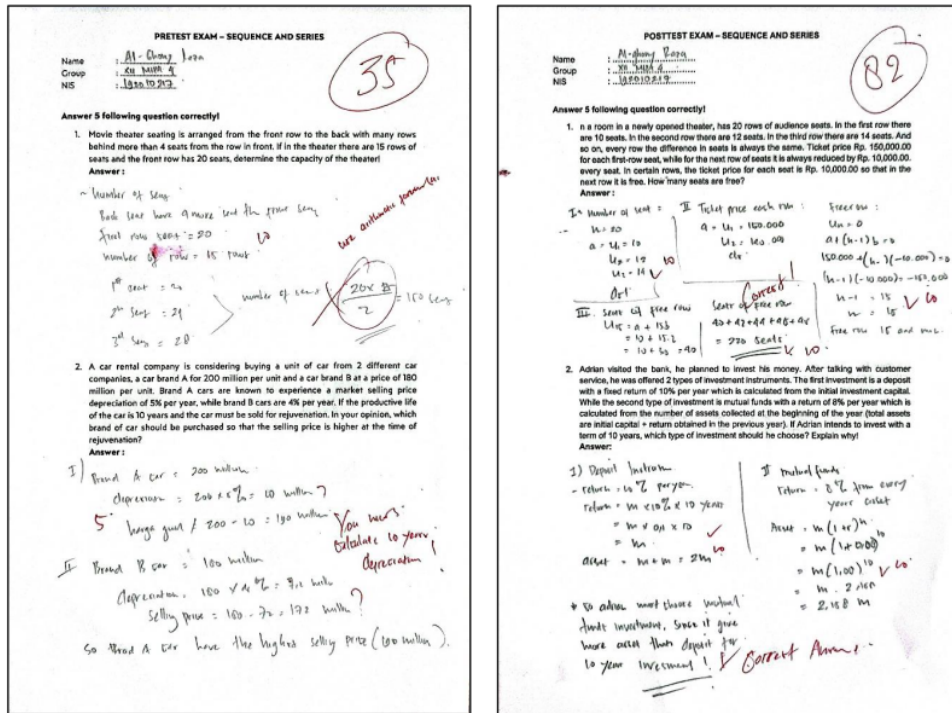 PRETEST EXAM – SEQUENCE AND SERIES
35
Name :
Group : XII MIPA 4
NIS :
Answer 5 following question correctly!
1. Movie theater seating is arranged from the front row to the back with many rows
behind more than 4 seats from the row in front. If in the theater there are 15 rows of
seats and the front row has 20 seats, determine the capacity of the theater!
Answer :
~ Number of seat
first row seat = 20
number of row = 15 row
use arithmetic formula
1st seat = 20
2nd seat = 24
3rd seat = 28
number of seats
2
= 150 seats
2. A car rental company is considering buying a unit of car from 2 different car
companies, a car brand A for 200 million per unit and a car brand B at a price of 180
million per unit. Brand A cars are known to experience a market selling price
depreciation of 5% per year, while brand B cars are 4% per year. If the productive life
of the car is 10 years and the car must be sold for rejuvenation. In your opinion, which
brand of car should be purchased so that the selling price is higher at the time of
rejuvenation?
Answer :
I) Brand A car = 200 million
= 200 x 5% = 10 million ?
5
200 - 10 = 190 million
You must
calculate 10 years
depreciation !
II Brand B car =
So Brand A car have the highest selling price (190 million).
POSTTEST EXAM – SEQUENCE AND SERIES
82
Name :
Group : XII MIPA 4
NIS :
Answer 5 following question correctly!
1. n a room in a newly opened theater, has 20 rows of audience seats. In the first row there
are 10 seats. In the second row there are 12 seats. In the third row there are 14 seats. And
so on, every row the difference in seats is always the same. Ticket price Rp. 150,000.00
for each first-row seat, while for the next row of seats it is always reduced by Rp. 10,000.00.
every seat. In certain rows, the ticket price for each seat is Rp. 10,000.00 so that in the
next row it is free. How many seats are free?
Answer :
I. Number of seat =
n = 20
a = U1 = 10
10
II Ticket price each row :
a = U1 = 150.000
free row :
Un = 0
a + (n-1) b = 0
150.000 + (n-1)(-10.000) = 0
(n-1)(-10.000) = -150.000
n-1 = 15
10
III. Seat of free row
= 10 + 15.2
= 10 + 30 = 40
Seats of free row
40 + 42 + 44 + 46 + 48
= 220 seats
10
Correct !
2. Adrian visited the bank, he planned to invest his money. After talking with customer
service, he was offered 2 types of investment instruments. The first investment is a deposit
with a fixed return of 10% per year which is calculated from the initial investment capital.
While the second type of investment is mutual funds with a return of 8% per year which is
calculated from the number of assets collected at the beginning of the year (total assets
are initial capital + return obtained in the previous year). If Adrian intends to invest with a
term of 10 years, which type of investment should he choose? Explain why!
Answer:
I) Deposit
- return = 10% per year
return = m x 10% x 10 years
= m x 0,1 x 10
= m
asset = m + m = 2m
10
II mutual funds
return = 8% from every
years asset
Asset = m (1 + r)
= m . 2,158
= 2,158 m
10
funds investment, since it give
more asset than deposit for
10 year investment !
Correct